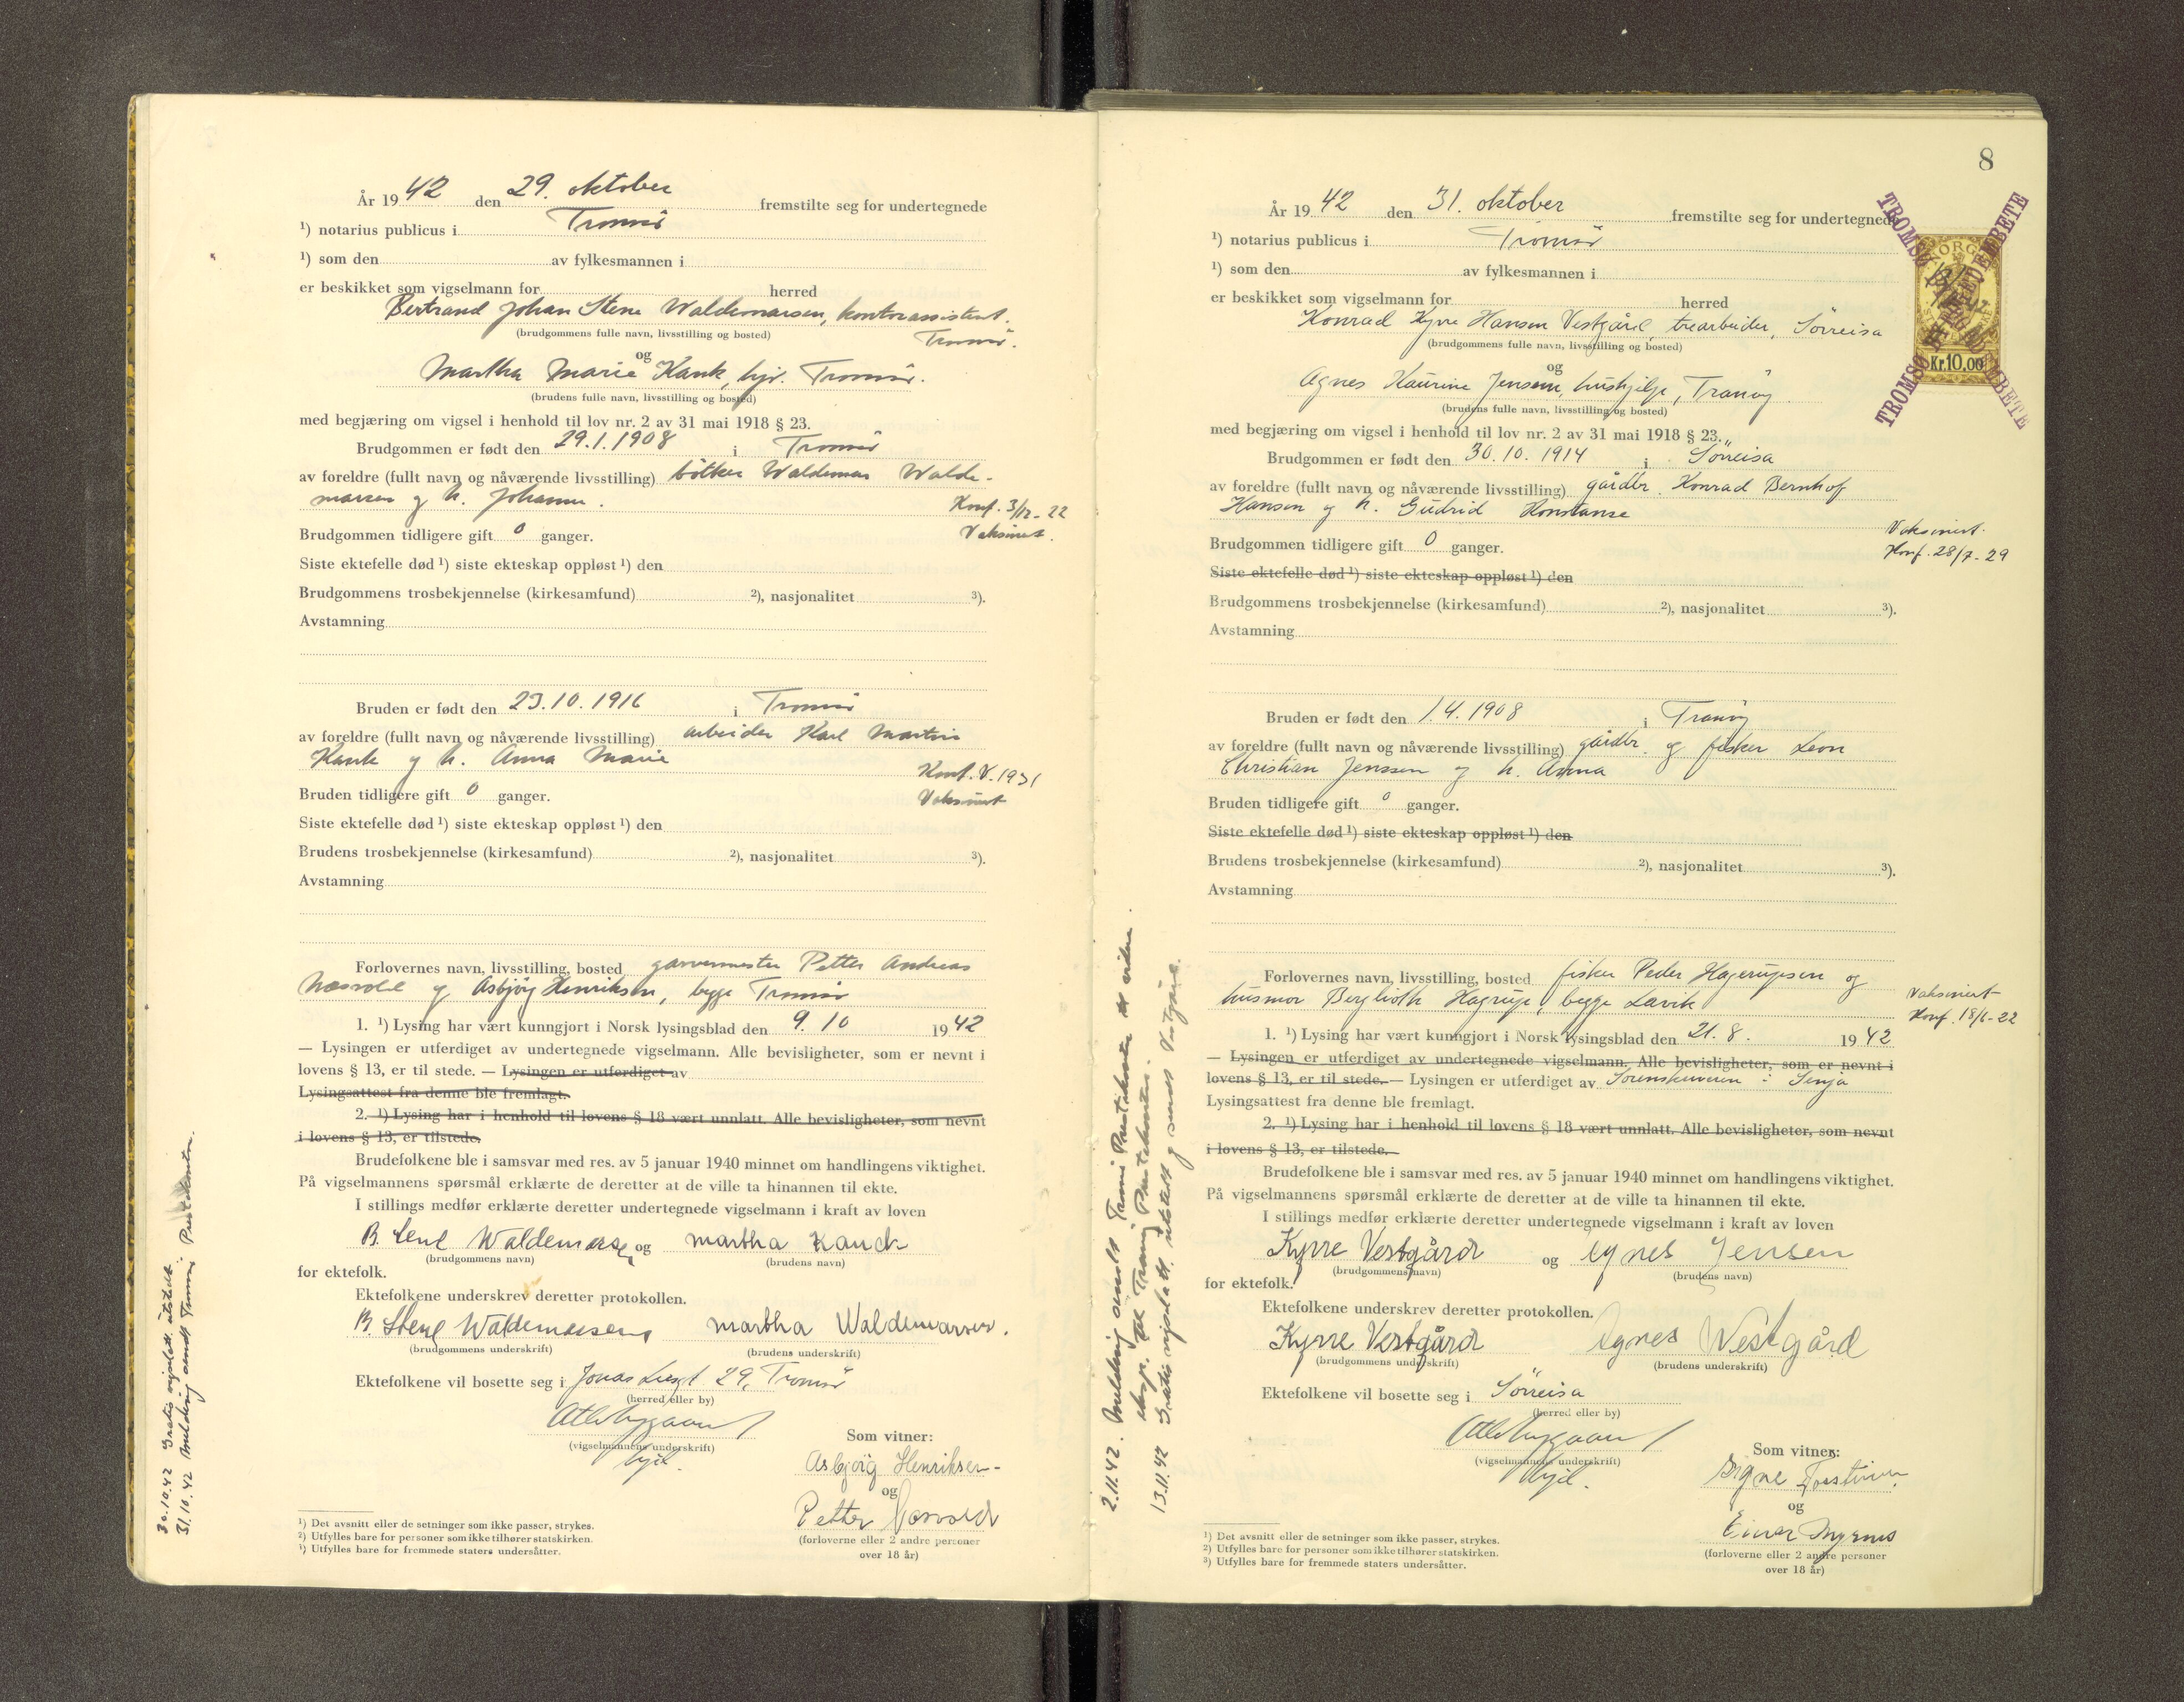 År 1942 den 29. oktober fremstilte seg for undertegnede
¹) notarius publicus i Tromsö
¹) som den av fylkesmannen i
er beskikket som vigselmann for herred
Bertrand Johan Stene Waldemarsen, kontorassistent.
(brudgommens fulle navn, livsstilling og bosted) Tromsö.
og
Martha Marie Hauk, hjv. Tromsö.
(brudens fulle navn, livsstilling og bosted)
med begjæring om vigsel i henhold til lov nr. 2 av 31 mai 1918 § 23.
Brudgommen er født den 29.1.1908 i Tromsö
av foreldre (fullt navn og nåværende livsstilling) bötker Waldemar Walde-
marsen og h. Johanne.
Konf. 3/12-22
Vaksinert.
Brudgommen tidligere gift 0 ganger.
Siste ektefelle død ¹) siste ekteskap oppløst ¹) den
Brudgommens trosbekjennelse (kirkesamfund) ²), nasjonalitet ³).
Avstamning
Bruden er født den 23.10.1916 i Tromsö
av foreldre (fullt navn og nåværende livsstilling) arbeider Karl Martin
Hauk og h. Anna Marie
Konf. V. 1931
Vaksinert
Bruden tidligere gift 0 ganger.
Siste ektefelle død ¹) siste ekteskap oppløst ¹) den
Brudens trosbekjennelse (kirkesamfund) ²), nasjonalitet ³).
Avstamning
Forlovernes navn, livsstilling, bosted garvermester Petter Andreas
Næsvold og Asbjörg Henriksen, begge Tromsö
1. ¹) Lysing har vært kunngjort i Norsk lysingsblad den 9. 10 1942
— Lysingen er utferdiget av undertegnede vigselmann. Alle bevisligheter, som er nevnt i
lovens § 13, er til stede. — Lysingen er utferdiget av
Lysingsattest fra denne ble fremlagt.
2. ¹) Lysing har i henhold til lovens § 18 vært unnlatt. Alle bevisligheter, som nevnt
i lovens § 13, er tilstede.
Brudefolkene ble i samsvar med res. av 5 januar 1940 minnet om handlingens viktighet.
På vigselmannens spørsmål erklærte de deretter at de ville ta hinannen til ekte.
I stillings medfør erklærte deretter undertegnede vigselmann i kraft av loven
B. Stene Waldemarsen og Martha Hauck
(brudgommens navn) (brudens navn)
for ektefolk.
Ektefolkene underskrev deretter protokollen.
B. Stene Waldemarsen Martha Waldemarsen.
(brudgommens underskrift) (brudens underskrift)
Ektefolkene vil bosette seg i Jonas Liesgt 29, Tromsö
(herred eller by)
(vigselmannens underskrift)
hjd.
Som vitner:
Asbjörg Henriksen-
og
Petter Næsvold
(forloverne eller 2 andre personer
over 18 år)
¹) Det avsnitt eller de setninger som ikke passer, strykes.
²) Utfylles bare for personer som ikke tilhører statskirken.
³) Utfylles bare for fremmede staters undersåtter.
30.10.42 Gratis vigselatt. utstedt.
31.10.42 Melding sendt Tromsö Prestekontor.
8
År 1942 den 31. oktober fremstilte seg for undertegnede
¹) notarius publicus i Tromsö
¹) som den av fylkesmannen i
er beskikket som vigselmann for herred
Konrad Kyrre Hansen Vestgård, trearbeider, Sörreisa
(brudgommens fulle navn, livsstilling og bosted)
og
Agnes Haurine Jensen, hushjelp, Tranöy.
(brudens fulle navn, livsstilling og bosted)
NORGE
Kr.10.00
TROMSØ BYFOGDEMBETE
TROMSØ BYFOGDEMBETE
med begjæring om vigsel i henhold til lov nr. 2 av 31 mai 1918 § 23.
Brudgommen er født den 30.10.1914 i Sörreisa
av foreldre (fullt navn og nåværende livsstilling) gårdbr. Konrad Bernhof
Hansen og h. Gudrid Konstanse
Vaksinert.
Konf. 28/7-29
Brudgommen tidligere gift 0 ganger.
Siste ektefelle død ¹) siste ekteskap oppløst ¹) den
Brudgommens trosbekjennelse (kirkesamfund) ²), nasjonalitet ³).
Avstamning
Bruden er født den 1.4.1908 i Tranöy
av foreldre (fullt navn og nåværende livsstilling) gårdbr. og fisker Leon
Christian Jenssen og h. Anna
Bruden tidligere gift 0 ganger.
Siste ektefelle død ¹) siste ekteskap oppløst ¹) den
Brudens trosbekjennelse (kirkesamfund) ²), nasjonalitet ³).
Avstamning
Forlovernes navn, livsstilling, bosted fisker Peder Hagerupsen og
husmor Berglioth Hagrup, begge Lavik
Vaksinert
Konf. 18/6-22
1. ¹) Lysing har vært kunngjort i Norsk lysingsblad den 21. 8. 1942
— Lysingen er utferdiget av undertegnede vigselmann. Alle bevisligheter, som er nevnt i
lovens § 13, er til stede. — Lysingen er utferdiget av Sorenskriveren i Senja
Lysingsattest fra denne ble fremlagt.
2. ¹) Lysing har i henhold til lovens § 18 vært unnlatt. Alle bevisligheter, som nevnt
i lovens § 13, er tilstede.
Brudefolkene ble i samsvar med res. av 5 januar 1940 minnet om handlingens viktighet.
På vigselmannens spørsmål erklærte de deretter at de ville ta hinannen til ekte.
I stillings medfør erklærte deretter undertegnede vigselmann i kraft av loven
Kyrre Vestgård og Agnes Jensen
(brudgommens navn) (brudens navn)
for ektefolk.
Ektefolkene underskrev deretter protokollen.
Kyrre Vestgård Agnes Vestgård
(brudgommens underskrift) (brudens underskrift)
Ektefolkene vil bosette seg i Sörreisa
(herred eller by)
(vigselmannens underskrift)
hjd.
Som vitner:
Signe
og
Einar Myrnes
(forloverne eller 2 andre personer
over 18 år)
¹) Det avsnitt eller de setninger som ikke passer, strykes.
²) Utfylles bare for personer som ikke tilhører statskirken.
³) Utfylles bare for fremmede staters undersåtter.
2.11.42. Melding sendt Tromsö Prestekontor til videre
eksp. til Tranöy Prestekontor.
13.11.42 Gratis vigselatt. utstedt og sendt Vestgård.